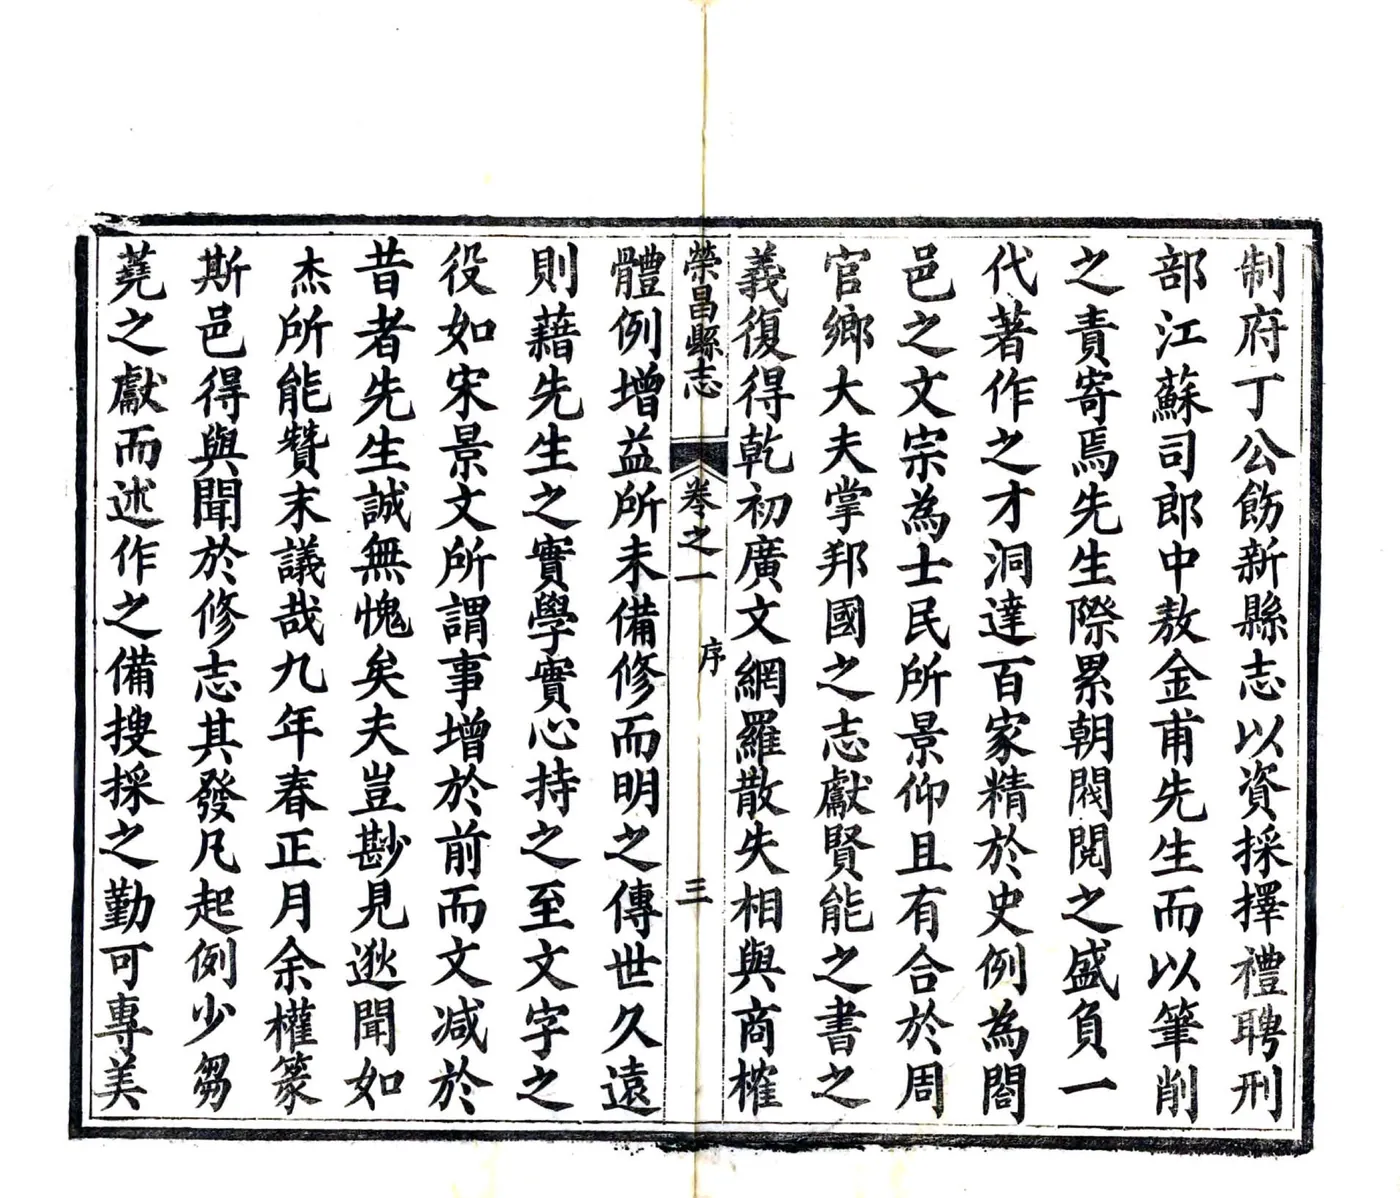 制府丁公飭新縣志以資採擇禮聘刑
部江蘇司郎中敖金甫先生而以筆削
之責寄焉先生際累朝閥閱之盛負一
代著作之才洞達百家精於史例為閤
邑之文宗為士民所景仰且有合於周
官鄉大夫掌邦國之志獻賢能之書之
義復得乾初廣文網羅散失相與商榷
榮昌縣志 卷之一 序 三
體例增益所未備修而明之傳世久遠
則藉先生之實學實心持之至文字之
役如宋景文所謂事增於前而文減於
昔者先生誠無愧矣夫豈尠見逖聞如
杰所能贊末議哉九年春正月余權篆
斯邑得與聞於修志其發凡起例少芻
蕘之獻而述作之備搜採之勤可專美